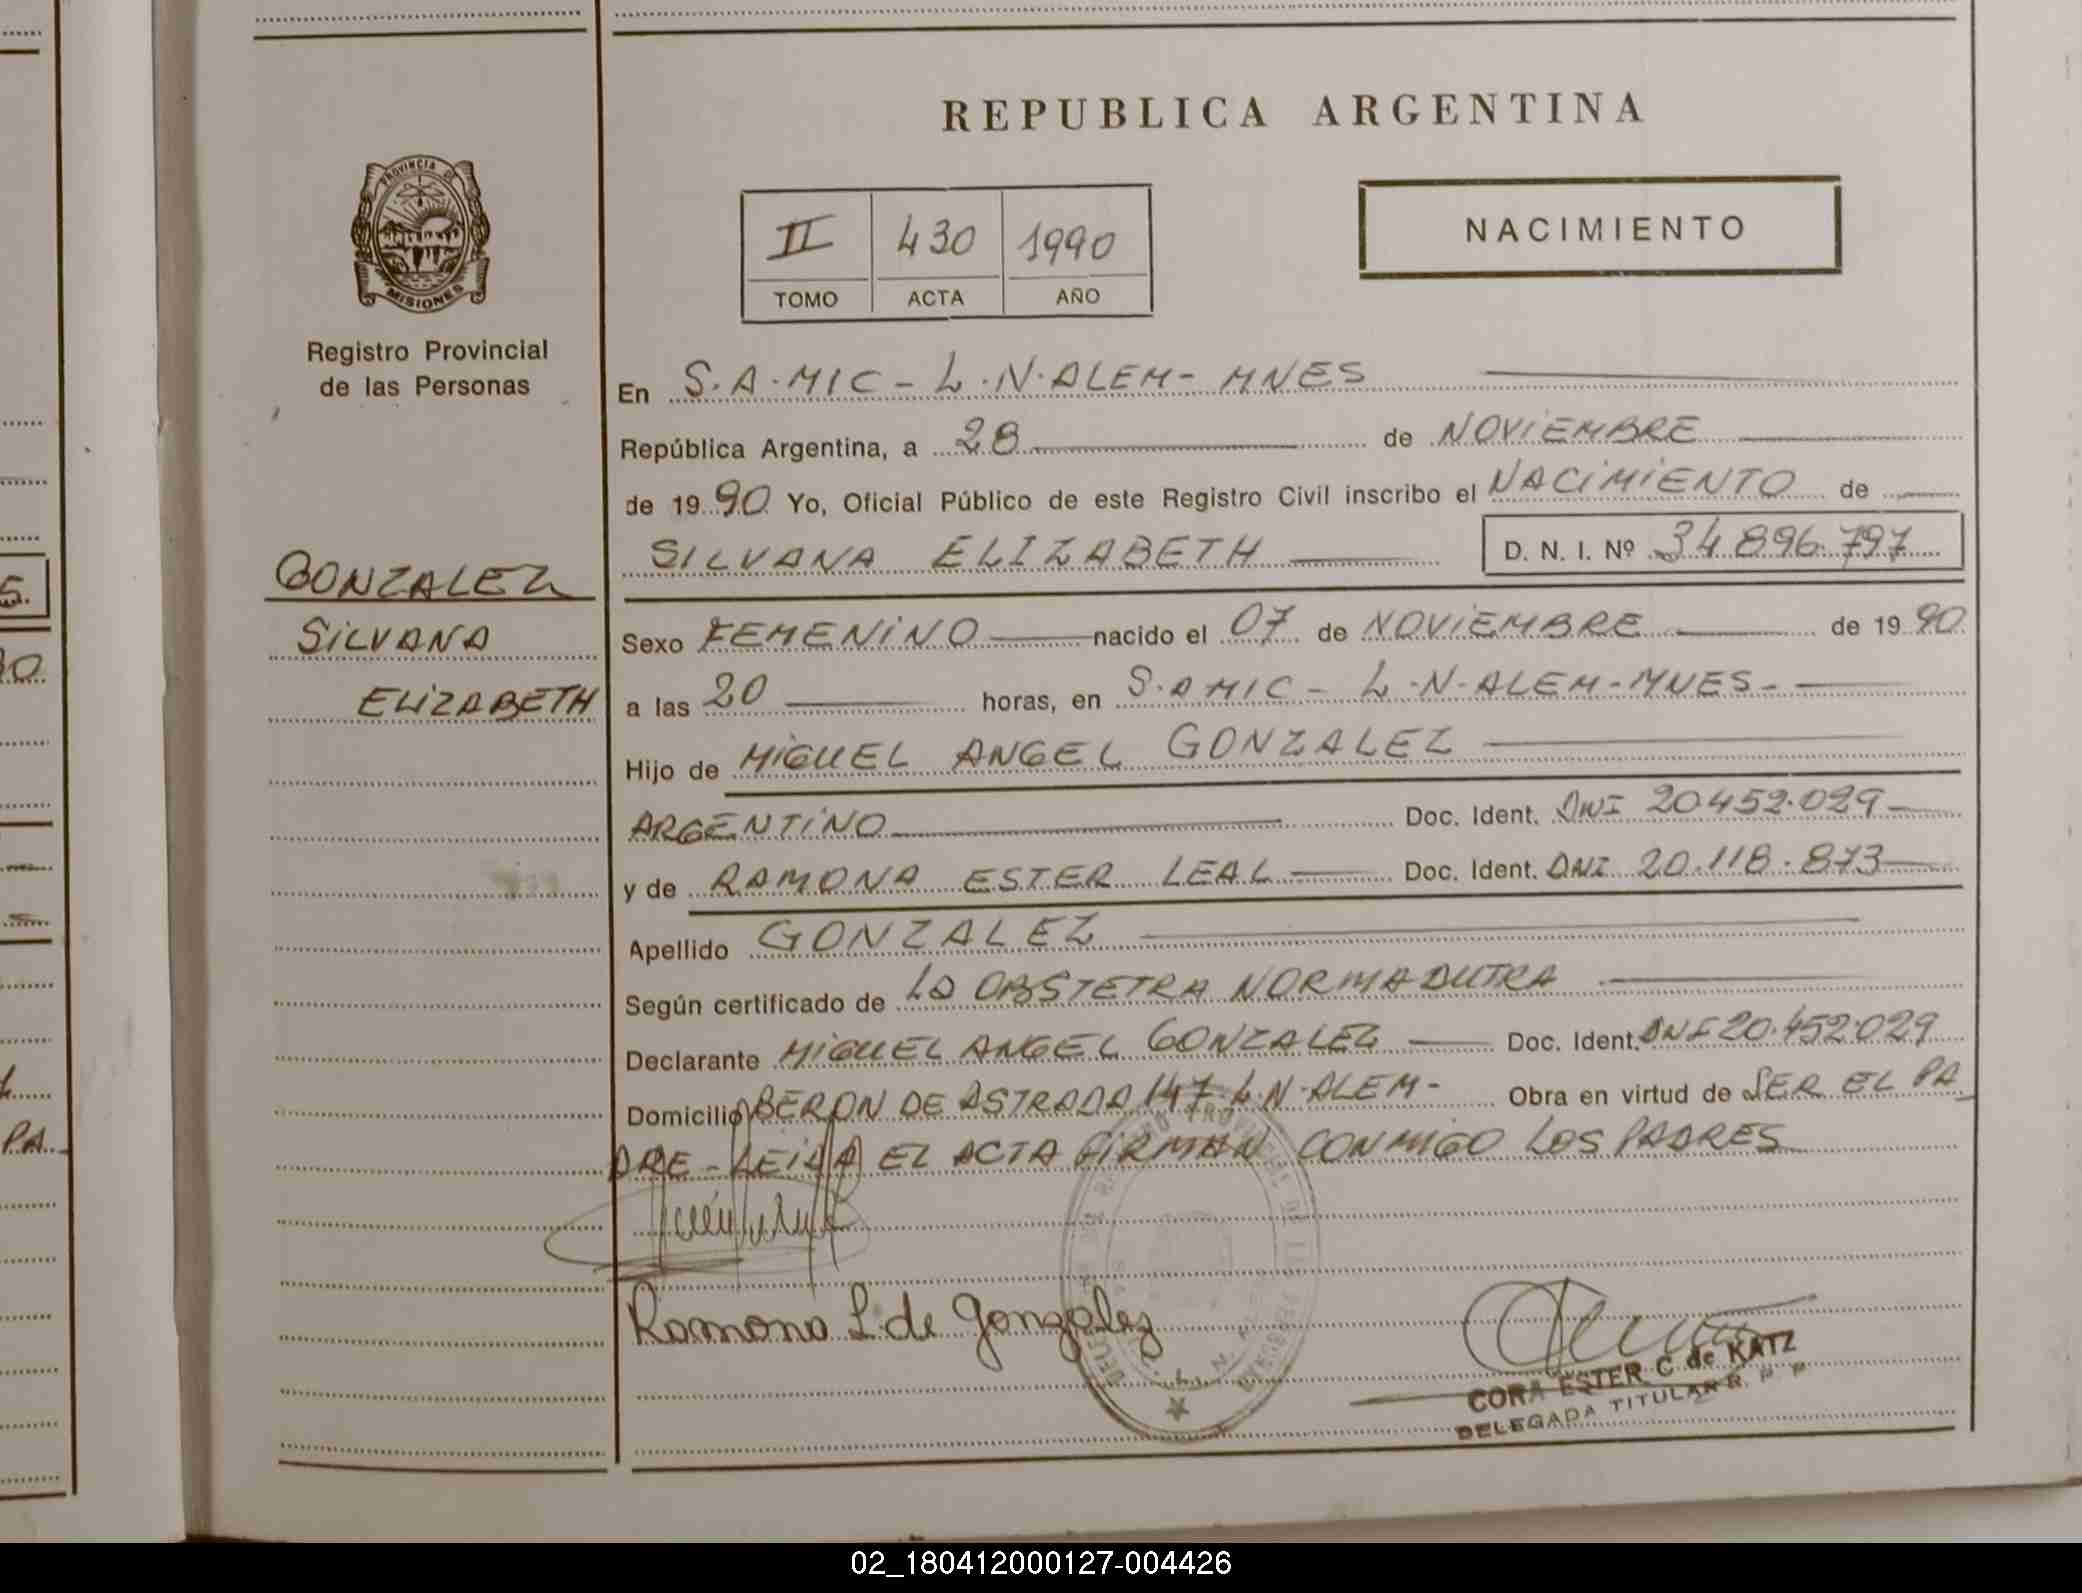 REPUBLICA ARGENTINA
PROVINCIA DE
MISIONES
Registro Provincial
de las Personas
II 430 1990
TOMO ACTA AÑO
NACIMIENTO
GONZALEZ
SILVANA
ELIZABETH
En S.A.MIC - L.N.ALEM - MNES
República Argentina, a 28 de NOVIEMBRE
de 1990 Yo, Oficial Público de este Registro Civil inscribo el NACIMIENTO de
SILVANA ELIZABETH D. N. I. Nº 34.896.797
Sexo FEMENINO nacido el 07 de NOVIEMBRE de 1990
a las 20 horas, en S.AMIC - L.N.ALEM - MNES -
Hijo de MIGUEL ANGEL GONZALEZ
ARGENTINO Doc. Ident. DNI 20.452.029
y de RAMONA ESTER LEAL Doc. Ident. DNI 20.118.873
Apellido GONZALEZ
Según certificado de LA OBSTETRA NORMA DUTRA
Declarante MIGUEL ANGEL GONZALEZ Doc. Ident. DNI 20.452.029
Domicilio BERON DE ASTRADA 147 - L.N.ALEM - Obra en virtud de SER EL PA
DRE - LEIDA EL ACTA FIRMAN CONMIGO LOS PADRES
Ramona L. de Gonzalez
CORA ESTER C. de KATZ
DELEGADA TITULAR R. P. P.
5.
90
PA
02_180412000127-004426